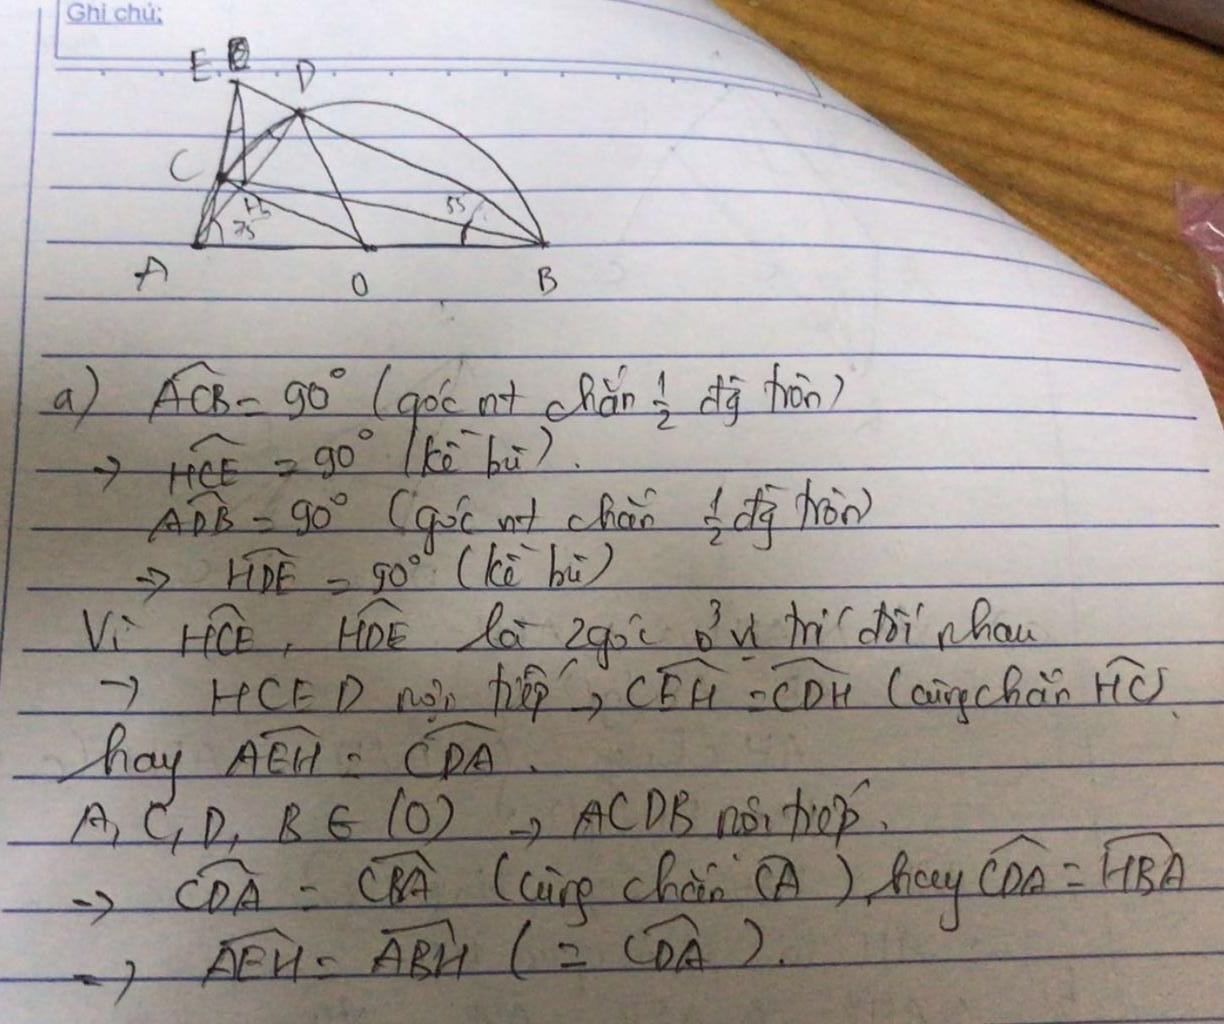 Ghi chú:
E D
C
H
75 55
A O B
a) ACB = 90° (góc nt chắn 1/2 đg tròn)
→ HCE = 90° (kề bù).
ADB = 90° (góc nt chắn 1/2 đg tròn)
→ HDE = 90° (kề bù)
Vì HCE, HDE là 2 góc ở vị trí đối nhau
→ HCED nội tiếp → CEH = CDH (cùng chắn HC)
hay AEH = CDA.
A, C, D, B ∈ (O) → ACDB nội tiếp.
→ CDA = CBA (cùng chắn CA), hay CDA = HBA
→ AEH = ABH (= CDA).